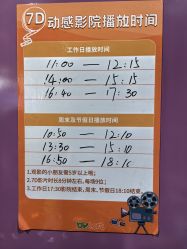 7D 动感影院播放时间
工作日播放时间
11:00 — 12:15
14:00 — 15:15
16:40 — 17:30
周末及节假日播放时间
10:50 — 12:10
13:30 — 15:10
16:50 — 18:10
1.观影的小朋友需5岁以上哦;
2.7D影片时长8分钟左右,每场9位;
3.工作日17:30影院结束,周末、节假日18:10结束